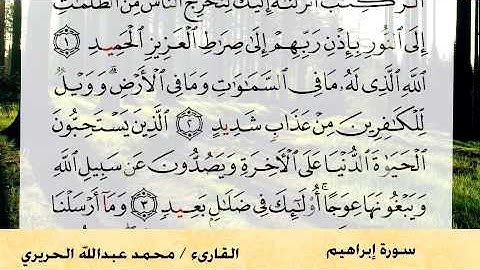 الٓر كِتَٰبٌ أَنزَلْنَٰهُ إِلَيْكَ لِتُخْرِجَ ٱلنَّاسَ مِنَ ٱلظُّلُمَٰتِ
إِلَى ٱلنُّورِ بِإِذْنِ رَبِّهِمْ إِلَىٰ صِرَٰطِ ٱلْعَزِيزِ ٱلْحَمِيدِ ١
ٱللَّهِ ٱلَّذِى لَهُۥ مَا فِى ٱلسَّمَٰوَٰتِ وَمَا فِى ٱلْأَرْضِ ۗ وَوَيْلٌ
لِّلْكَٰفِرِينَ مِنْ عَذَابٍ شَدِيدٍ ٢ ٱلَّذِينَ يَسْتَحِبُّونَ
ٱلْحَيَوٰةَ ٱلدُّنْيَا عَلَى ٱلْءَاخِرَةِ وَيَصُدُّونَ عَن سَبِيلِ ٱللَّهِ
وَيَبْغُونَهَا عِوَجًا ۚ أُو۟لَٰٓئِكَ فِى ضَلَٰلٍۭ بَعِيدٍ ٣ وَمَآ أَرْسَلْنَا
سورة إبراهيم
القارىء / محمد عبدالله الحريري